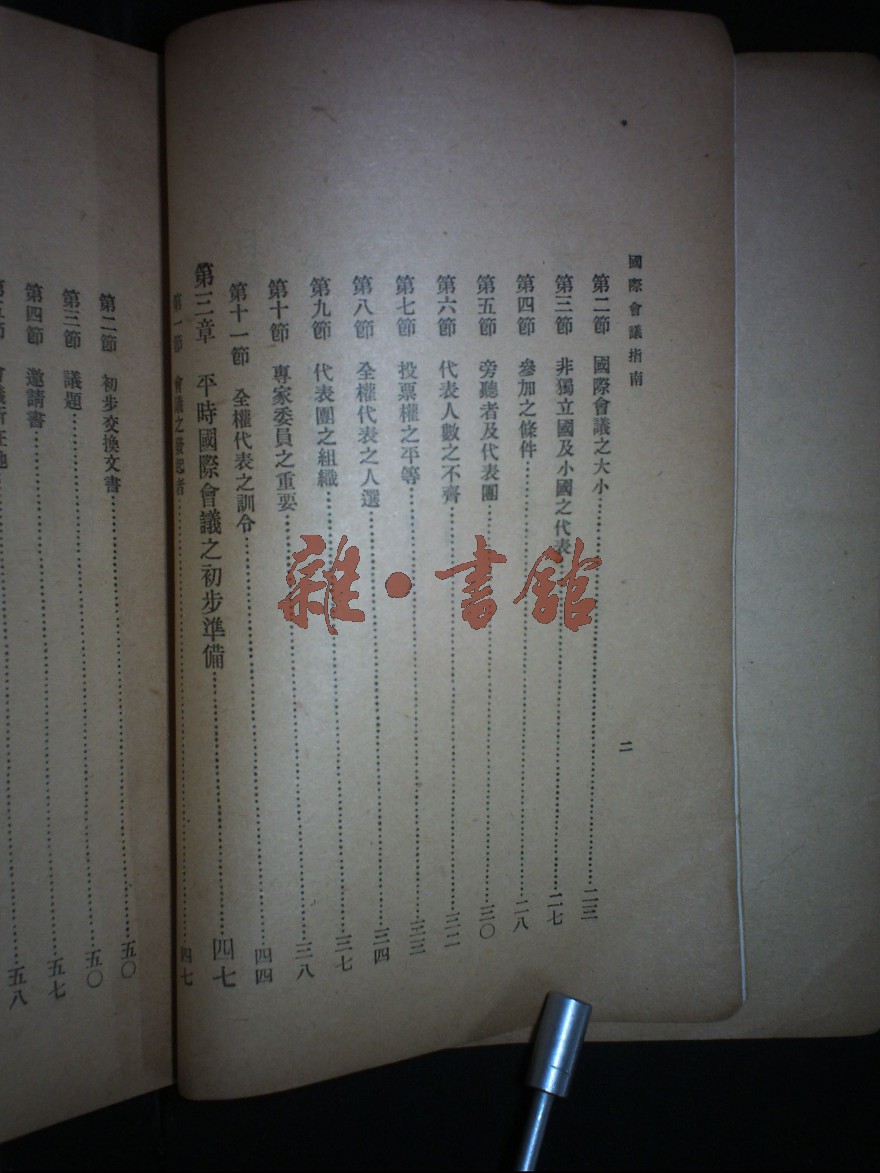 國際會議指南
二
第二節 國際會議之大小 二三
第三節 非獨立國及小國之代表 二七
第四節 參加之條件 二八
第五節 旁聽者及代表團 三〇
第六節 代表人數之不齊 三二
第七節 投票權之平等 三三
第八節 全權代表之人選 三四
第九節 代表團之組織 三七
第十節 專家委員之重要 三八
第十一節 全權代表之訓令 四四
第三章 平時國際會議之初步準備 四七
第一節 會議之發起者 四七
第二節 初步交換文書 五〇
第三節 議題 五〇
第四節 邀請書 五七
會議所在地 五八
雜·書館